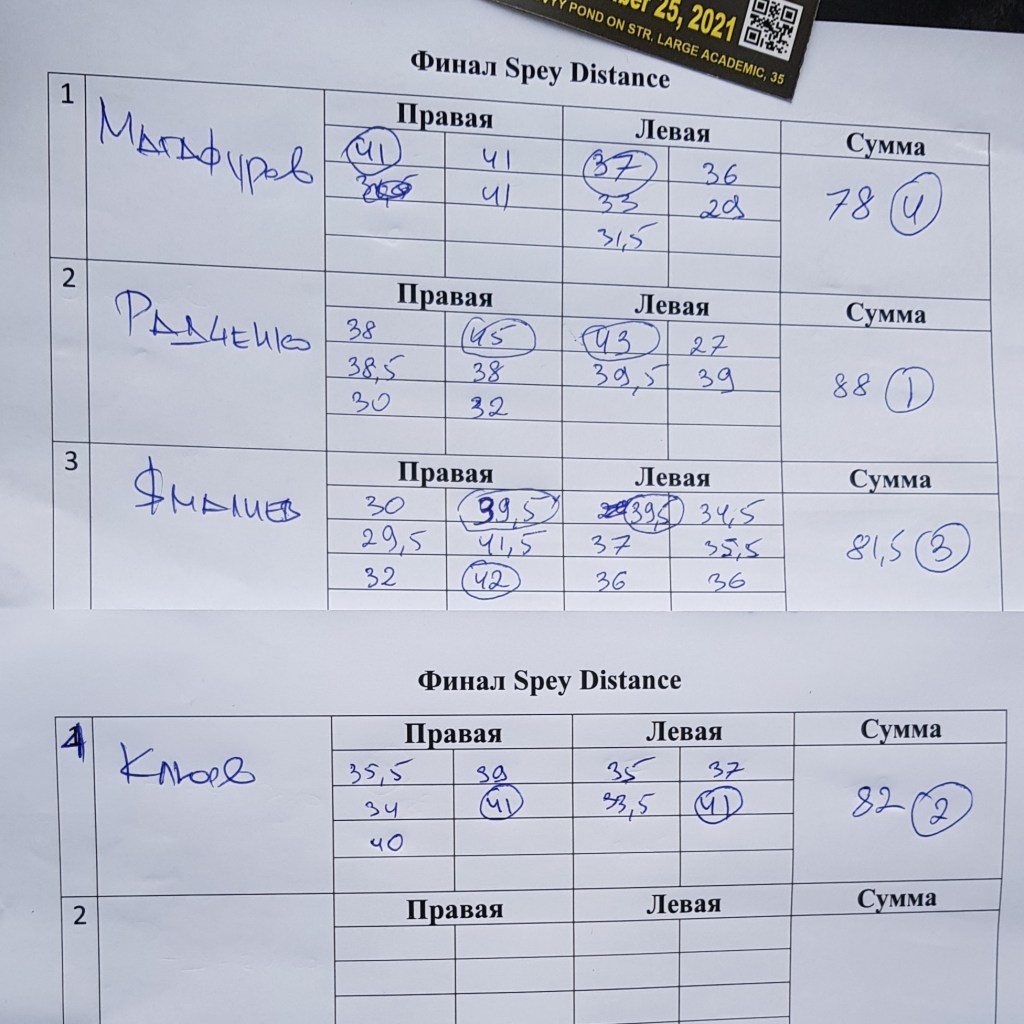 ber 25, 2021
POND ON STR. LARGE ACADEMIC, 35
Финал Spey Distance
1 Магафуров Правая Левая Сумма
41 41 37 36 78 4
41 33 29
31,5
2 Радченко Правая Левая Сумма
38 45 43 27 88 1
38,5 38 39,5 39
30 32
3 Правая Левая Сумма
30 39,5 39,5 34,5 81,5 3
29,5 41,5 37 35,5
32 42 36 36
Финал Spey Distance
4 Клюев Правая Левая Сумма
35,5 39 35 37 82 2
34 41 33,5 41
40
2 Правая Левая Сумма